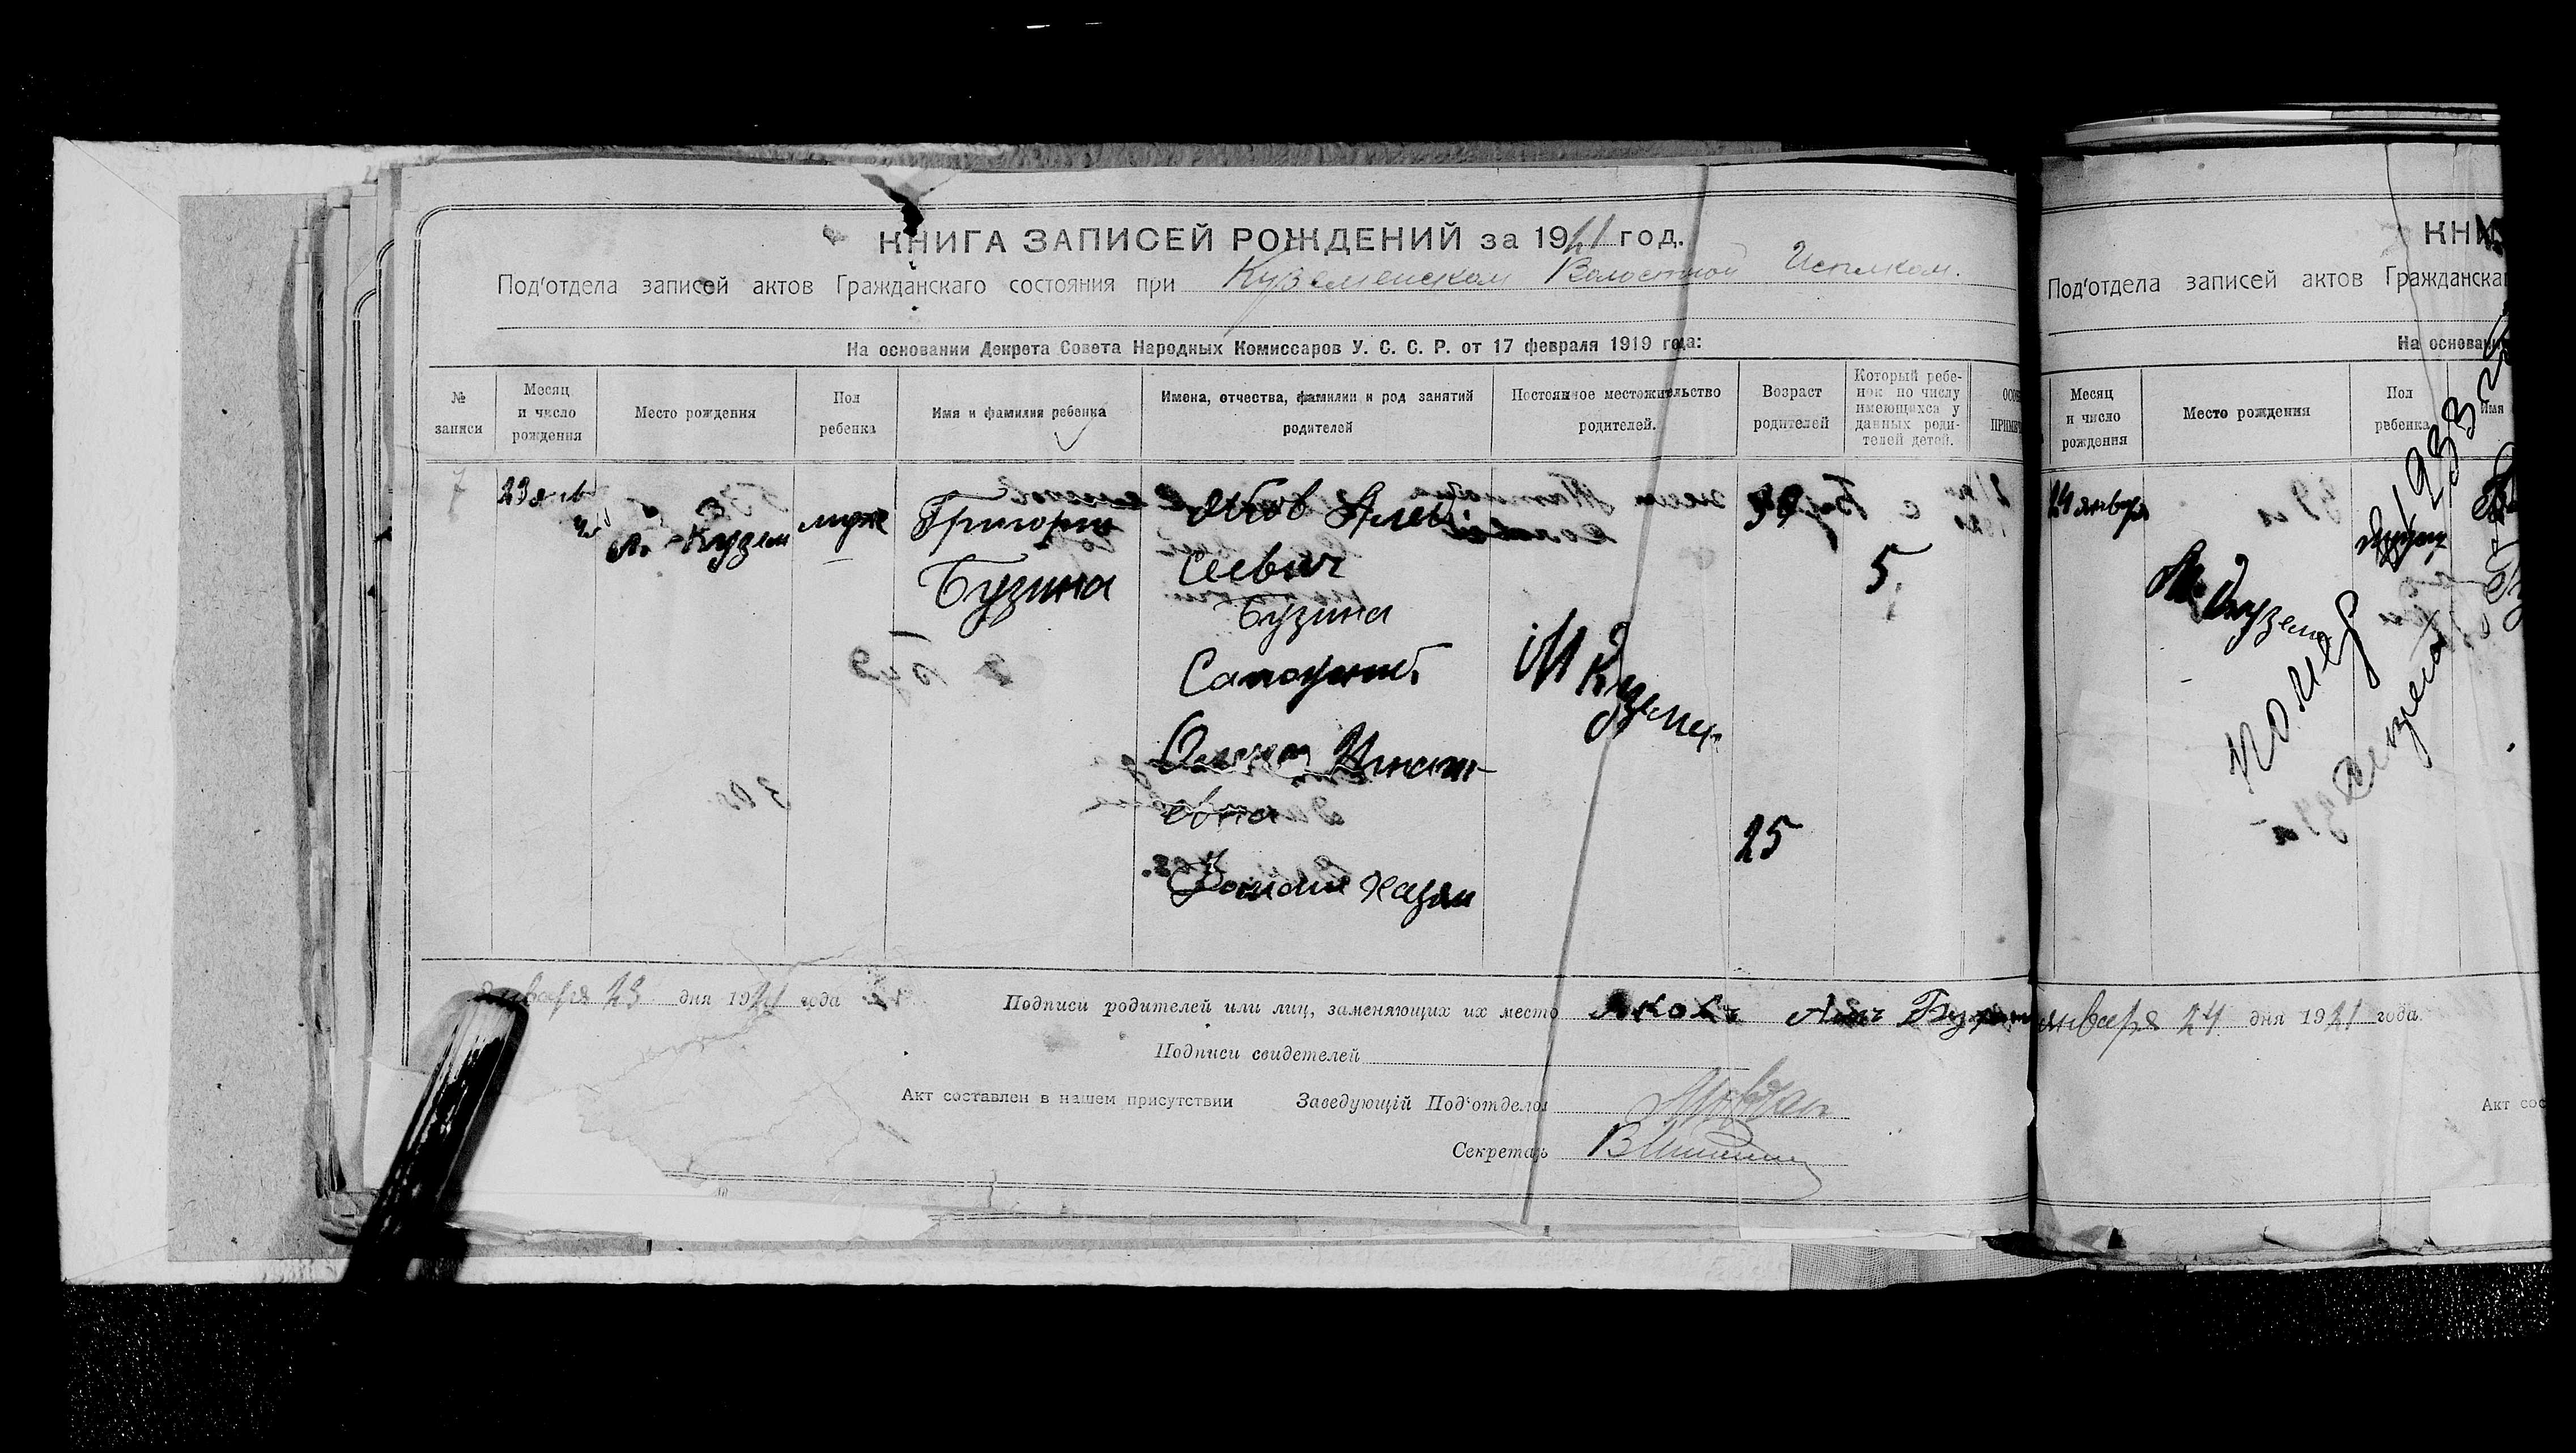 КНИГА ЗАПИСЕЙ РОЖДЕНИЙ за 1921 год.
Под'отдела записей актов Гражданскаго состояния при Куземенском Волостной Исполком.
На основании Декрета Совета Народных Комиссаров У. С. С. Р. от 17 февраля 1919 года:
№ записи
Месяц и число рождения
Место рождения
Пол ребенка
Имя и фамилия ребенка
Имена, отчества, фамилии и род занятий родителей
Постоянное местожительство родителей.
Возраст родителей
Который ребенок по числу имеющихся у данных родителей детей.
7
23 янв
м. Кузем
муж
Григорий
Бузина
Яков Алек
сеевич
Бузина
Сапожник
Игнат
евна
Домаш хазяй
М Куземен
39
25
5
Января 23 дня 1921 года
Подписи родителей или лиц, заменяющих их место Яковъ
Подписи свидетелей
Акт составлен в нашем присутствии Заведующій Под'отделом
Секретарь
КНИ
Под'отдела записей актов Гражданска
На основани
Месяц и число рождения
Место рождения
Пол ребенка
Имя
24 января
м. Кузем
помер
1933
января 24 дня 1921 года
Акт сос